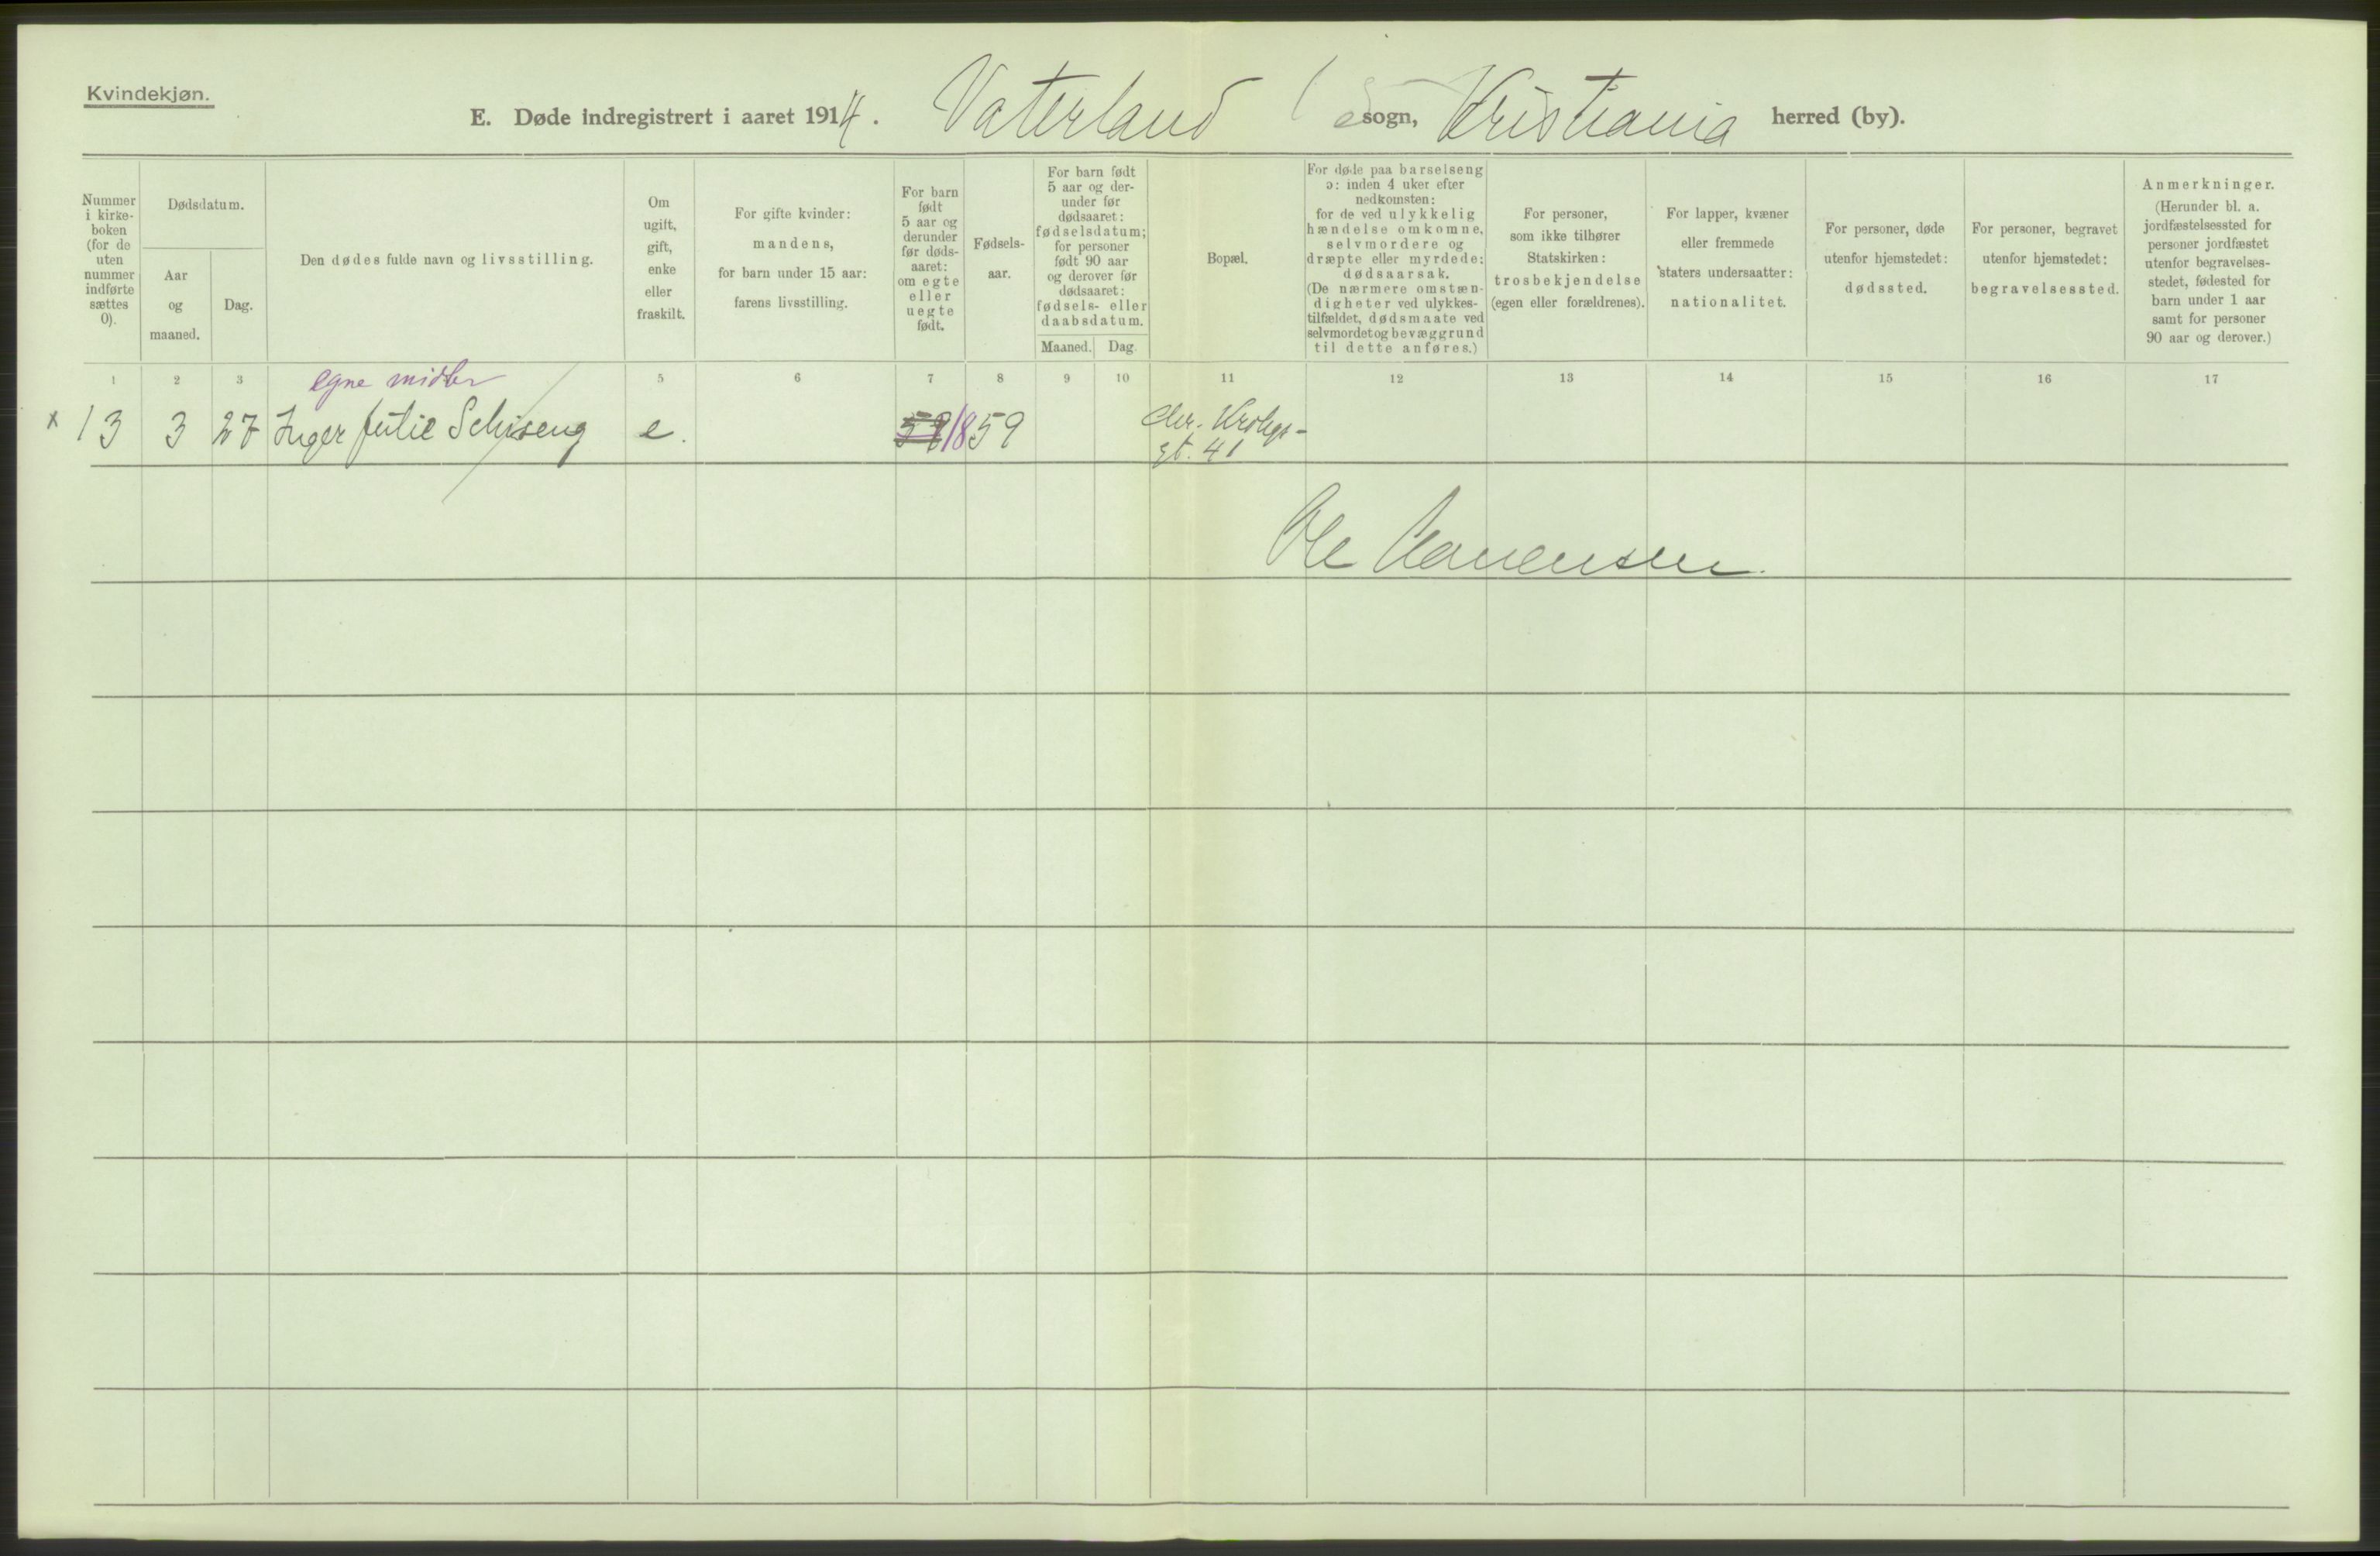 Kvindekjøn.
E. Døde indregistrert i aaret 1914. Vaterland sogn, Kristiania herred (by).
Nummer
i kirke-
boken
(for de
uten
nummer
indførte
sættes
0).
Dødsdatum.
Aar
og
maaned.
Dag.
Den dødes fulde navn og livsstilling.
Om
ugift,
gift,
enke
eller
fraskilt.
For gifte kvinder:
mandens,
for barn under 15 aar:
farens livsstilling.
For barn
født
5 aar og
derunder
før døds-
aaret:
om egte
eller
uegte
født.
Fødsels-
aar.
For barn født
5 aar og der-
under før
dødsaaret:
fødselsdatum;
for personer
født 90 aar
og derover før
dødsaaret:
fødsels- eller
daabsdatum.
Maaned.
Dag.
Bopæl.
For døde paa barselseng
ɔ: inden 4 uker efter
nedkomsten:
for de ved ulykkelig
hændelse omkomne,
selvmordere og
dræpte eller myrdede:
dødsaarsak.
(De nærmere omstæn-
digheter ved ulykkes-
tilfældet, dødsmaate ved
selvmordet og bevæggrund
til dette anføres.)
For personer,
som ikke tilhører
Statskirken:
trosbekjendelse
(egen eller forældrenes).
For lapper, kvæner
eller fremmede
staters undersaatter:
nationalitet.
For personer, døde
utenfor hjemstedet:
dødssted.
For personer, begravet
utenfor hjemstedet:
begravelsessted.
Anmerkninger.
(Herunder bl. a.
jordfæstelsessted for
personer jordfæstet
utenfor begravelses-
stedet, fødested for
barn under 1 aar
samt for personer
90 aar og derover.)
1 2 3 5 6 7 8 9 10 11 12 13 14 15 16 17
egne midler
x 13 3 27 Inger Julie Schiseng e. 1859 Chr. Krohgs-
gt. 41
Ole